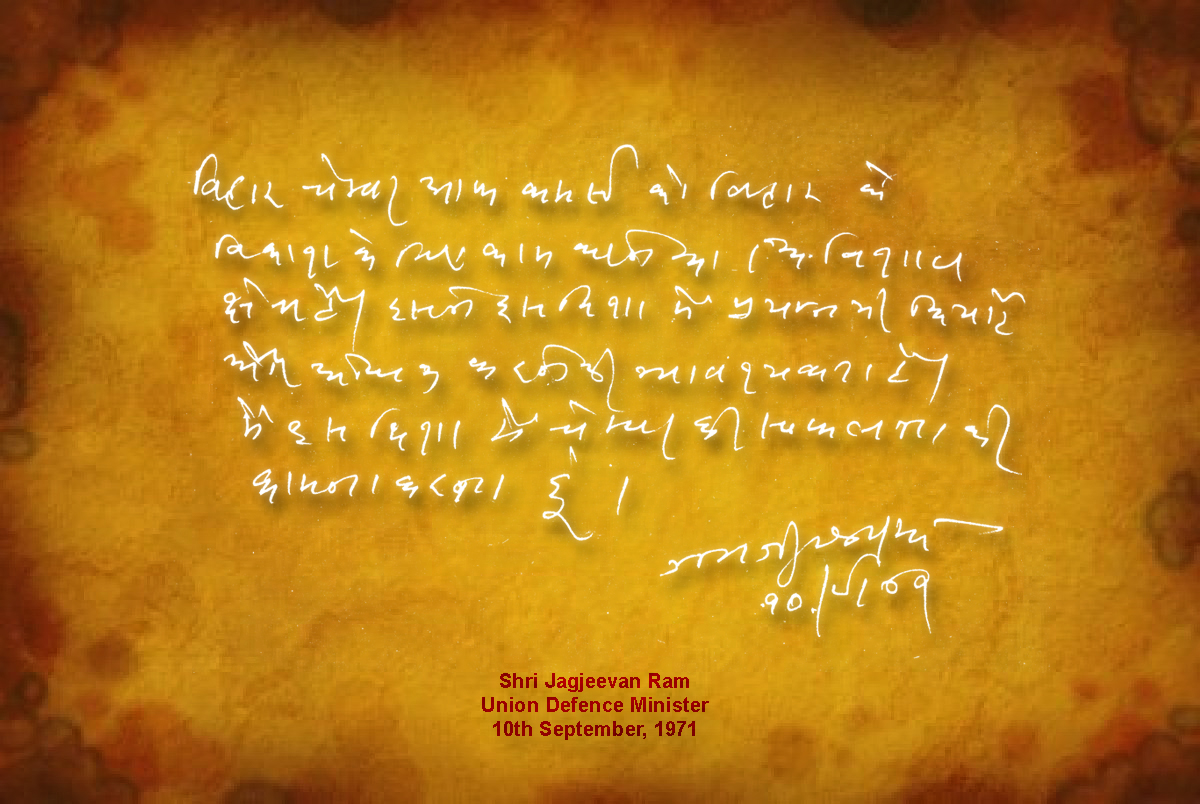 बिहार चेम्बर आफ कामर्स को बिहार के
विकाश के लिए काम करने का विशाल
क्षेत्र है। इसने इस दिशा में प्रयत्न भी किया है
और अधिक करने की आवश्यकता है।
मैं इस दिशा में चेम्बर की सफलता की
कामना करता हूँ ।
जगजीवन राम
१०/९/७१
Shri Jagjeevan Ram
Union Defence Minister
10th September, 1971